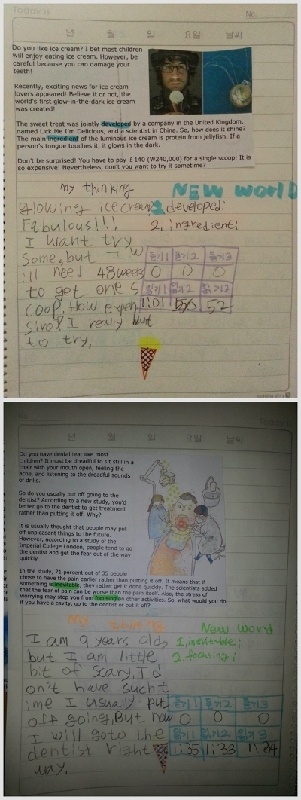 Today is
No.
년 월 일 요일 날씨
Do you like ice cream? I bet most children
will enjoy eating ice cream. However, be
careful because you can damage your
teeth!
Recently, exciting news for ice cream
lovers appeared! Believe it or not, the
world's first glow-in-the-dark ice cream
was created!
The sweet treat was jointly developed by a company in the United Kingdom,
named Lick Me I'm Delicious, and a scientist in China. So, how does it shine?
The main ingredient of the luminous ice cream is protein from jellyfish. If a
person's tongue touches it, it glows in the dark.
Don't be surprised! You have to pay £140 (₩240,000) for a single scoop. It is
so expensive! Nevertheless, don't you want to try it sometime?
my thinking
NEW World
Glowing ice cream
1. developed:
Fabulous!!!
2. ingredient:
I want try
some, but
I'll need
to get one s
coop. How expen
sive! I really but
to try.
읽기1 읽기2 읽기3
0 0 0
읽기1 읽기2 읽기3
년 월 일 요일 날씨
Do you have dental fear like most
children?
with your mouth open, feeling the
and listening to the dreadful sounds
of drills.
So do you usually put off going to the
dentist? According to a new study, you'd
better go to the dentist to get treatment
rather than putting it off. Why?
It is usually thought that people may put
off unpleasant things to the future.
However, according to a study at the
Imperial College London, people tend to go
the dentist and get the fear out of the way
quickly.
In the study, 71 percent out of 35 people
chose to have the pain earlier rather than putting it off. It means that if
something is inevitable, they rather get it done quickly. The scientists added
that the fear of pain can be worse than the pain itself. Also, the stress of
worrying may stop you from focusing on other activities. So what would you do
if you have a cavity, go to the dentist or put it off?
New word
I am 9 years old,
1. inevitable:
but I am little
bit of scary. I d
on't have such t
ime I usually put
off going. But now
I will go to the
dentist right
way.
읽기1 읽기2 읽기3
0 0 0
읽기1 읽기2 읽기3
1:35 1:33 1:24